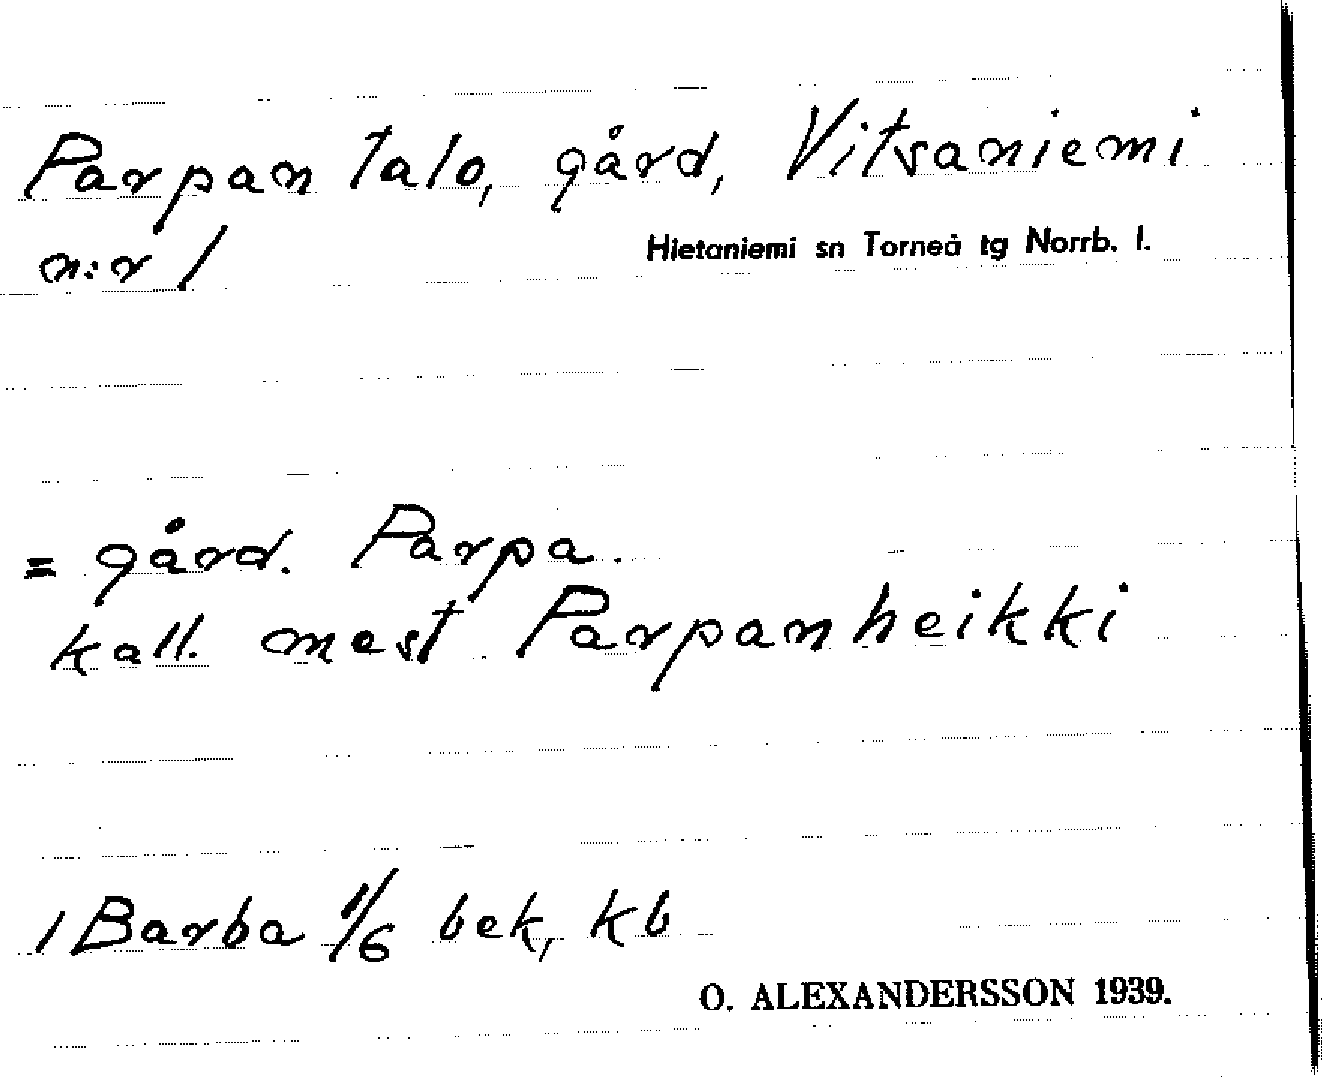 Parpan talo, gård, Vitsaniemi
n:r 1
Hietaniemi sn Torneå tg Norrb. l.
= gård. Parpa.
kall. mest Parpanheikki
1 Barba 1/6 bek, kb
O. ALEXANDERSSON 1939.